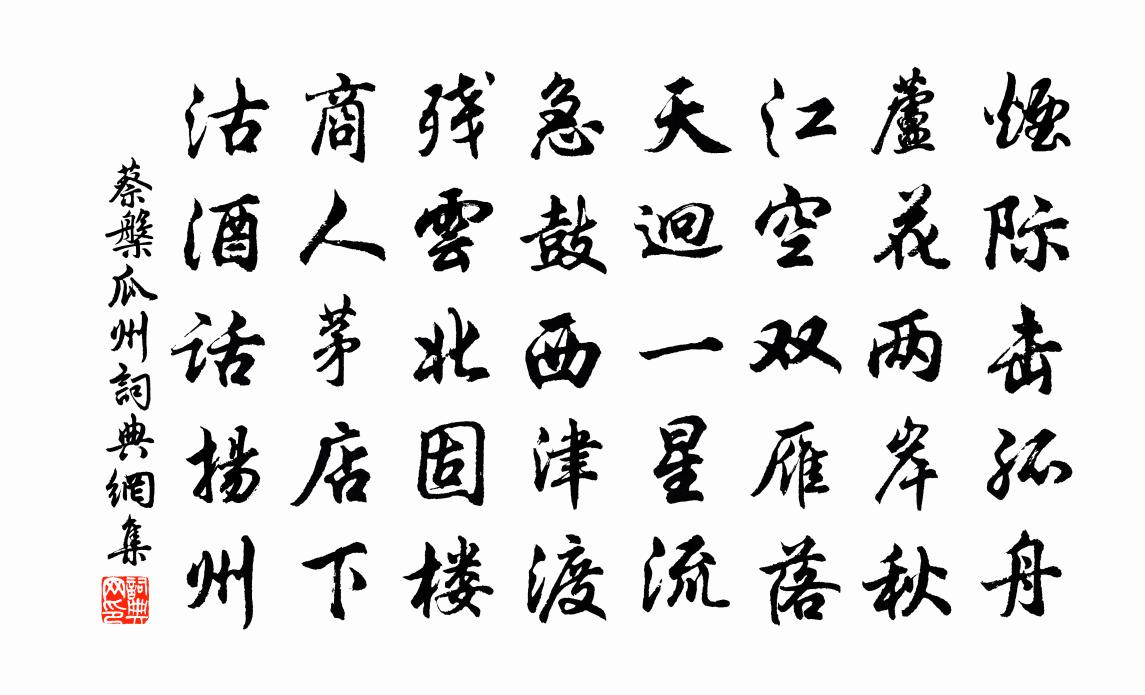 煙际击孤舟
蘆花两岸秋
江空双雁落
天逈一星流
急鼓西津渡
残雲北固楼
商人茅店下
沽酒话揚州
蔡槃瓜州詞典網集
詞典网印